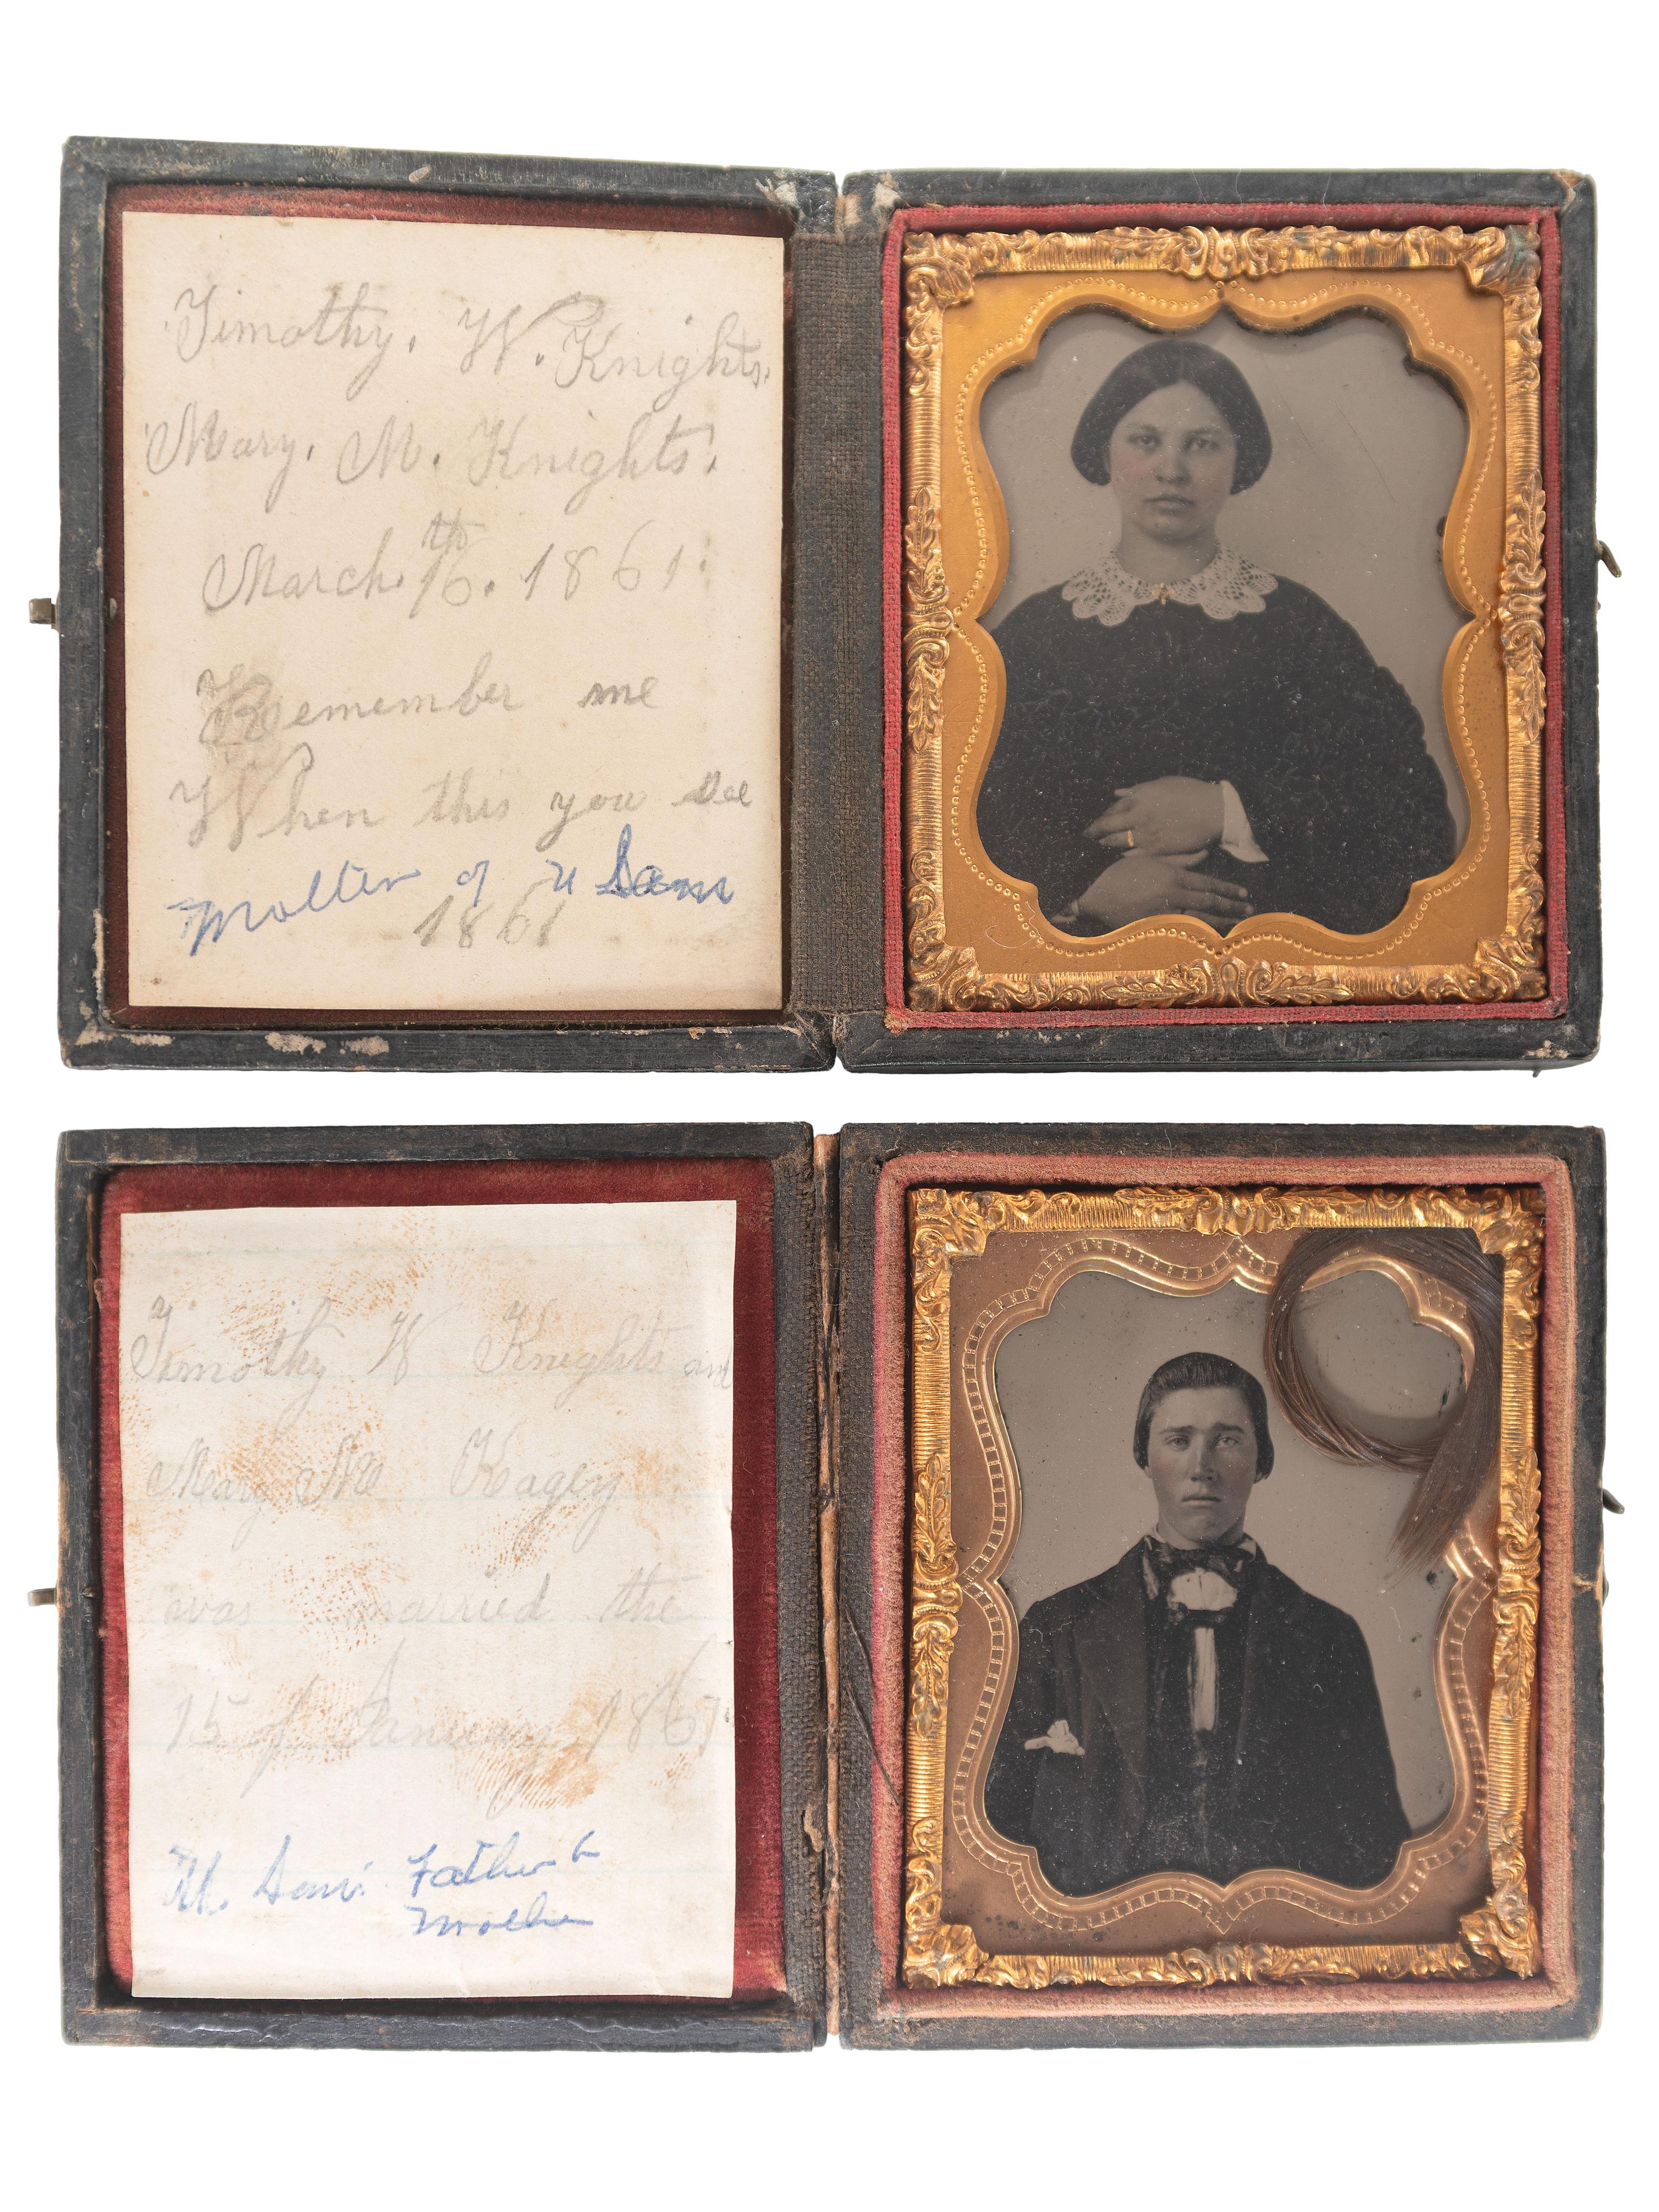 Timothy. W. Knights.
Mary. M. Knights.
March. 16th. 1861.
Remember me
When this you see
Mother of
1861
Timothy W Knights and
Mary M Kagey
was married the
15 of January 1861
Father &
Mother